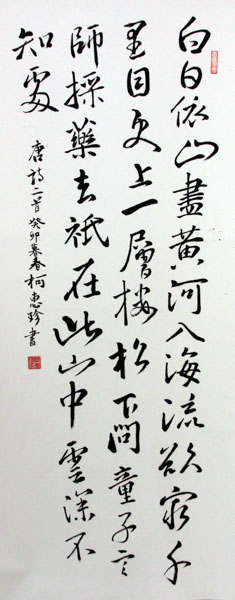 白日依山盡黃河入海流欲窮千
里目更上一層樓松下問童子言
師採藥去祇在此山中雲深不
知處
唐詩二首癸卯暮春柯惠珍書